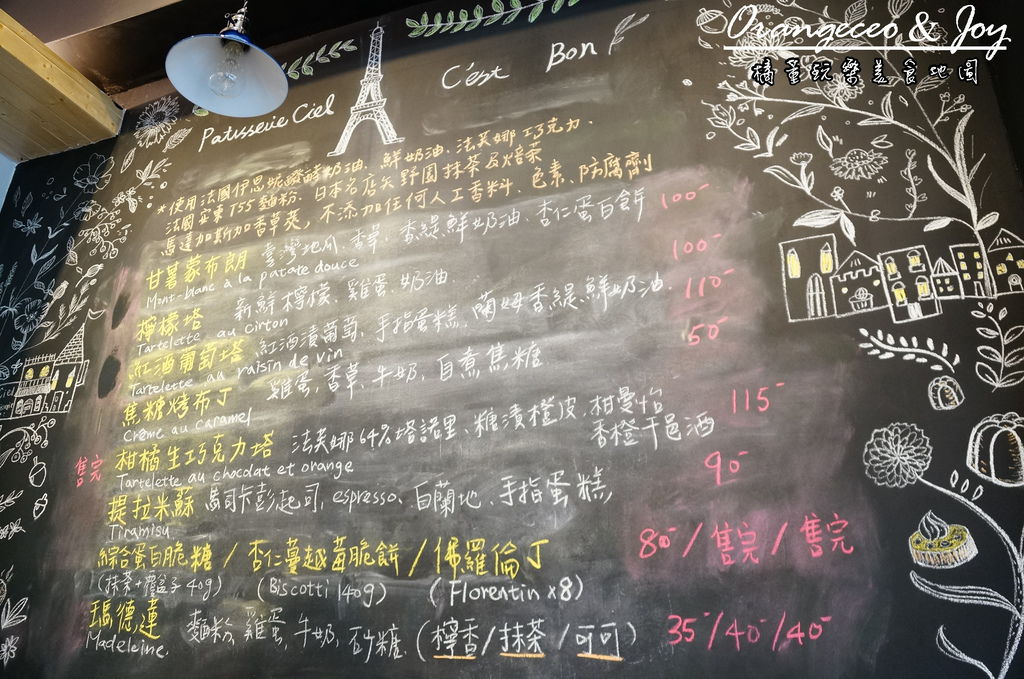 Orangeceo & Joy
橘董玩樂美食地圖
Patisserie Ciel
C'est Bon
*使用法國伊思妮發酵奶油、鮮奶油、法芙娜巧克力、
法國麥東T55麵粉、日本名店矢野園抹茶&焙茶
馬達加斯加香草莢,不添加任何人工香料、色素、防腐劑
甘薯蒙布朗 臺灣地瓜、香草、香緹鮮奶油、杏仁蛋白餅 100-
Mont-blanc à la patate douce
檸檬塔 新鮮檸檬、雞蛋、奶油. 100-
Tartelette au cirton
紅酒葡萄塔 紅酒漬葡萄、手指蛋糕、蘭姆香緹鮮奶油. 110-
Tartelette au raisin de vin
焦糖烤布丁 雞蛋,香草,牛奶,自煮焦糖 50-
Crème au caramel
售完 柑橘生巧克力塔 法芙娜64%塔諾里、糖漬橙皮、柑曼怡香橙干邑酒 115-
Tartelette au chocolat et orange
提拉米蘇 馬司卡彭起司, espresso、白蘭地、手指蛋糕, 90-
Tiramisu
綜合蛋白脆糖 / 杏仁蔓越莓脆餅 / 佛羅倫丁 80-/售完/售完
(抹茶+覆盆子40g) (Biscotti 140g) (Florentin x8)
瑪德蓮 麵粉,雞蛋,牛奶,砂糖. (檸香/抹茶/可可) 35-/40-/40-
Madeleine.